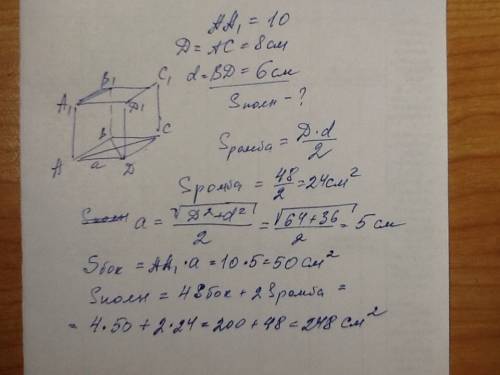 AA₁ = 10
D = AC = 8 см
d = BD = 6 см
Sполн - ?
B₁
C₁
A₁
D₁
B
C
A
a
D
Sромба = D·d / 2
Sромба = 48/2 = 24 см²
a = √(D²+d²) / 2 = √(64+36) / 2 = 5 см
Sбок = AA₁ · a = 10 · 5 = 50 см²
Sполн = 4Sбок + 2Sромба =
= 4·50 + 2·24 = 200 + 48 = 248 см²